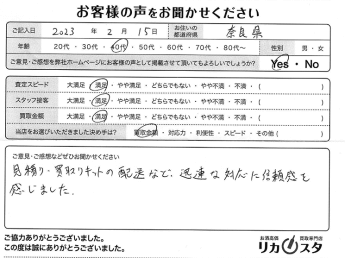 お客様の声をお聞かせください
ご記入日 2023 年 2 月 15 日 お住いの都道府県 奈良県
年齢 20代・30代・40代・50代・60代・70代・80代〜 性別 男・女
ご意見・ご感想を弊社ホームページにお客様の声として掲載させて頂いてもよろしいでしょうか? Yes・No
査定スピード 大満足・満足・やや満足・どちらでもない・やや不満・不満・( )
スタッフ接客 大満足・満足・やや満足・どちらでもない・やや不満・不満・( )
買取金額 大満足・満足・やや満足・どちらでもない・やや不満・不満・( )
当店をお選びいただきました決め手は? 買取金額・対応力・利便性・スピード・その他( )
ご意見・ご感想などぜひお聞かせください
見積り・買取りキットの配送など、迅速な対応に信頼感を
感じました。
ご協力ありがとうございました。
この度は誠にありがとうございました。
お酒高価買取専門店
リカスタ